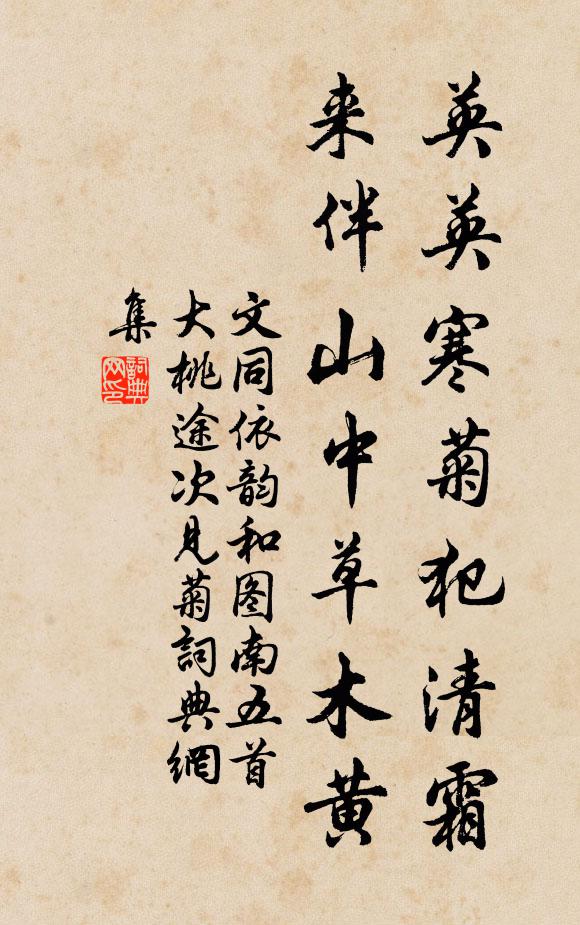 英英寒菊犯清霜
来伴山中草木黄
文同依韵和图南五首
大桃途次见菊詞典網
集
詞典网印